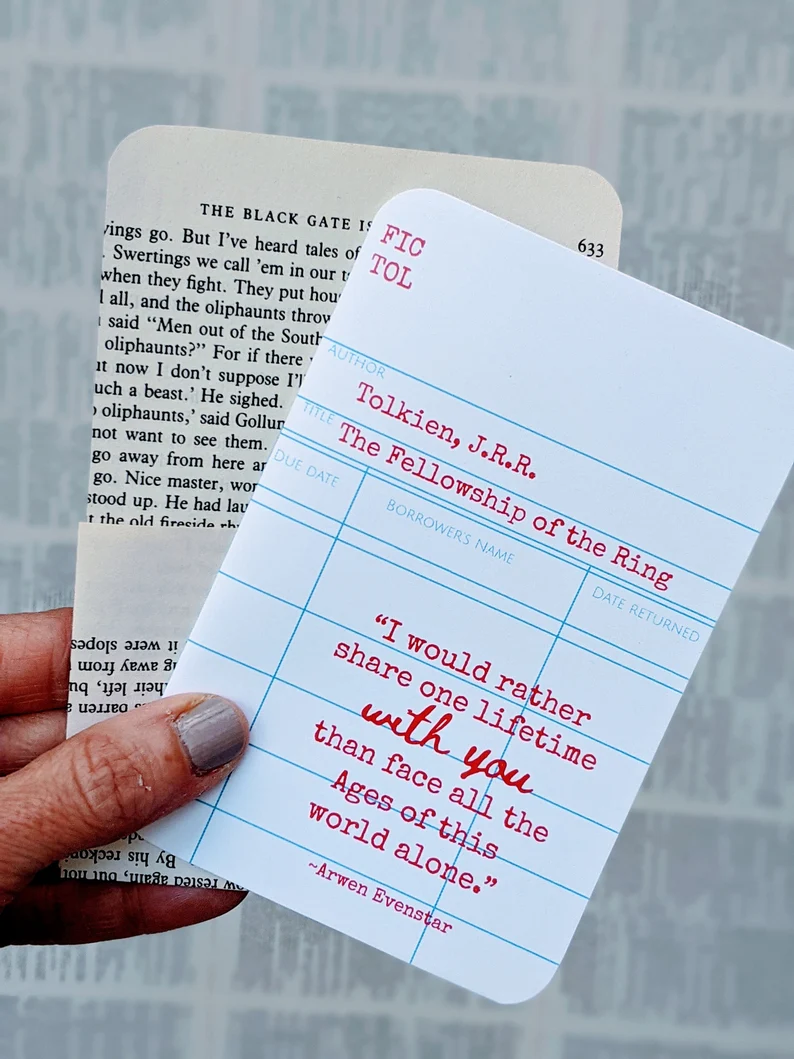 THE BLACK GATE IS
633
ings go. But I've heard tales of
. Swertings we call 'em in our
when they fight. They put
all, and the oliphaunts throw
said “Men out of the South
oliphaunts?” For if there
now I don't suppose I'll
uch a beast.' He sighed.
oliphaunts,' said Gollum
not want to see them.
go away from here
go. Nice master,
stood up. He had
the old fireside
it were slopes
away from
their left,
barren
By his
rested again, but
FIC
TOL
AUTHOR
Tolkien, J.R.R.
TITLE
The Fellowship of the Ring
DUE DATE
BORROWER'S NAME
DATE RETURNED
“I would rather
share one lifetime
with you
than face all the
Ages of this
world alone.”
~Arwen Evenstar